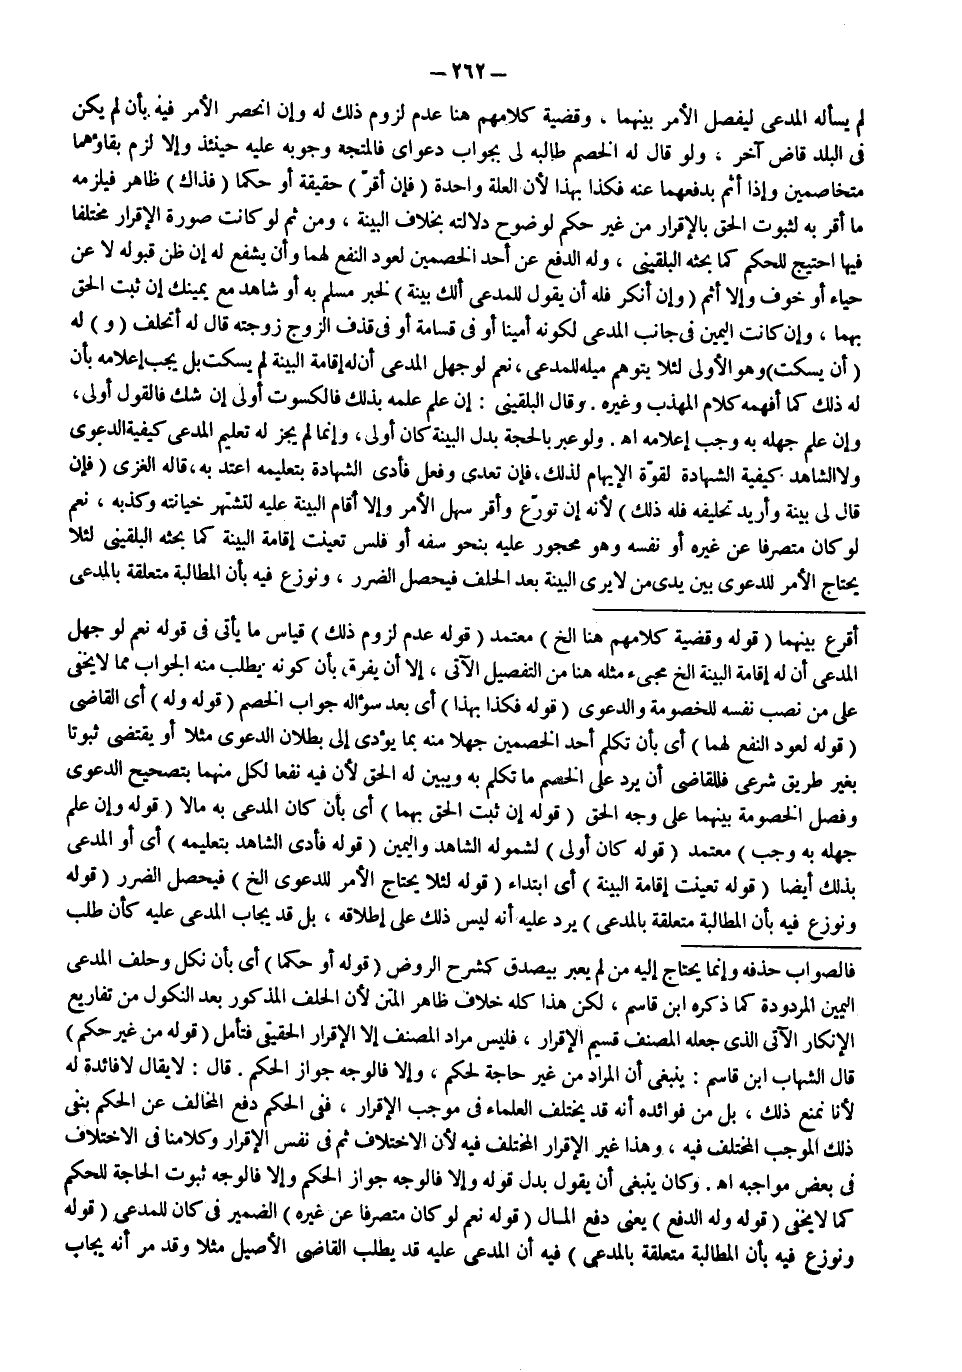 — ٢٦٢ —
لم يسأله المدعى ليفصل الأمر بينهما ، وقضية كلامهم هنا عدم لزوم ذلك له وإن انحصر الأمر فيه بأن لم يكن
فى البلد قاض آخر ، ولو قال له الخصم طالبه لى بجواب دعواى فالمتجه وجوبه عليه حينئذ وإلا لزم بقاؤهما
متخاصمين وإذا أثم بدفعهما عنه فكذا بهذا لأن العلة واحدة ( فإن أقرّ ) حقيقة أو حكما ( فذاك ) ظاهر فيلزمه
ما أقر به لثبوت الحق بالإقرار من غير حكم لوضوح دلالته بخلاف البينة ، ومن ثم لو كانت صورة الإقرار مختلفا
فيها احتيج للحكم كما بحثه البلقينى ، وله الدفع عن أحد الخصمين لعود النفع لهما وأن يشفع له إن ظن قبوله لا عن
حياء أو خوف وإلا أثم ( وإن أنكر فله أن يقول للمدعى ألك بينة ) لخبر مسلم به أو شاهد مع يمينك إن ثبت الحق
بهما ، وإن كانت اليمين فى جانب المدعى لكونه أمينا أو فى قسامة أو فى قذف الزوج زوجته قال له أتحلف ( و ) له
( أن يسكت) وهو الأولى لئلا يتوهم ميله للمدعى ، نعم لو جهل المدعى أن له إقامة البينة لم يسكت بل يجب إعلامه بأن
له ذلك كما أفهمه كلام المهذب وغيره . وقال البلقينى : إن علم علمه بذلك فالكسوت أولى إن شك فالقول أولى ،
وإن علم جهله به وجب إعلامه اه . ولو عبر بالحجة بدل البينة كان أولى ، وإنما لم يجز له تعليم المدعى كيفية الدعوى
ولا الشاهد كيفية الشهادة لقوّة الإيهام لذلك ، فإن تعدى وفعل فأدى الشهادة بتعليمه اعتد به ، قاله الغزى ( فإن
قال لى بينة وأريد تحليفه فله ذلك ) لأنه إن تورّع وأقر سهل الأمر وإلا أقام البينة عليه لتشهر خيانته وكذبه ، نعم
لو كان متصرفا عن غيره أو نفسه وهو محجور عليه بنحو سفه أو فلس تعينت إقامة البينة كما بحثه البلقينى لئلا
يحتاج الأمر للدعوى بين يدى من لا يرى البينة بعد الحلف فيحصل الضرر ، ونوزع فيه بأن المطالبة متعلقة بالمدعى
أقرع بينهما ( قوله وقضية كلامهم هنا الخ ) معتمد ( قوله عدم لزوم ذلك ) قياس ما يأتى فى قوله نعم لو جهل
المدعى أن له إقامة البينة الخ مجىء مثله هنا من التفصيل الآتى ، إلا أن يفرق بأن كونه يطلب منه الجواب مما لا يخفى
على من نصب نفسه للخصومة والدعوى ( قوله فكذا بهذا ) أى بعد سؤاله جواب الخصم ( قوله وله ) أى القاضى
( قوله لعود النفع لهما ) أى بأن تكلم أحد الخصمين جهلا منه بما يؤدى إلى بطلان الدعوى مثلا أو يقتضى ثبوتا
بغير طريق شرعى فللقاضى أن يرد على الخصم ما تكلم به ويبين له الحق لأن فيه نفعا لكل منهما بتصحيح الدعوى
وفصل الخصومة بينهما على وجه الحق ( قوله إن ثبت الحق بهما ) أى بأن كان المدعى به مالا ( قوله وإن علم
جهله به وجب ) معتمد ( قوله كان أولى ) لشموله الشاهد واليمين ( قوله فأدى الشاهد بتعليمه ) أى أو المدعى
بذلك أيضا ( قوله تعينت إقامة البينة ) أى ابتداء ( قوله لئلا يحتاج الأمر للدعوى الخ ) فيحصل الضرر ( قوله
ونوزع فيه بأن المطالبة متعلقة بالمدعى ) يرد عليه أنه ليس ذلك على إطلاقه ، بل قد يجاب المدعى عليه كأن طلب
فالصواب حذفه وإنما يحتاج إليه من لم يعبر بيصدق كشرح الروض ( قوله أو حكما ) أى بأن نكل وحلف المدعى
اليمين المردودة كما ذكره ابن قاسم ، لكن هذا كله خلاف ظاهر المتن لأن الحلف المذكور بعد النكول من تفاريع
الإنكار الآتى الذى جعله المصنف قسيم الإقرار ، فليس مراد المصنف إلا الإقرار الحقيقى فتأمل ( قوله من غير حكم )
قال الشهاب ابن قاسم : ينبغى أن المراد من غير حاجة لحكم ، وإلا فالوجه جواز الحكم . قال : لا يقال لا فائدة له
لأنا نمنع ذلك ، بل من فوائده أنه قد يختلف العلماء فى موجب الإقرار ، ففى الحكم دفع المخالف عن الحكم بنفى
ذلك الموجب المختلف فيه ، وهذا غير الإقرار المختلف فيه لأن الاختلاف ثم فى نفس الإقرار وكلامنا فى الاختلاف
فى بعض مواجبه اه . وكان ينبغى أن يقول بدل قوله وإلا فالوجه جواز الحكم وإلا فالوجه ثبوت الحاجة للحكم
كما لا يخفى ( قوله وله الدفع ) يعنى دفع المال ( قوله نعم لو كان متصرفا عن غيره ) الضمير فى كان للمدعى ( قوله
ونوزع فيه بأن المطالبة متعلقة بالمدعى ) فيه أن المدعى عليه قد يطلب القاضى الأصيل مثلا وقد مر أنه يجاب